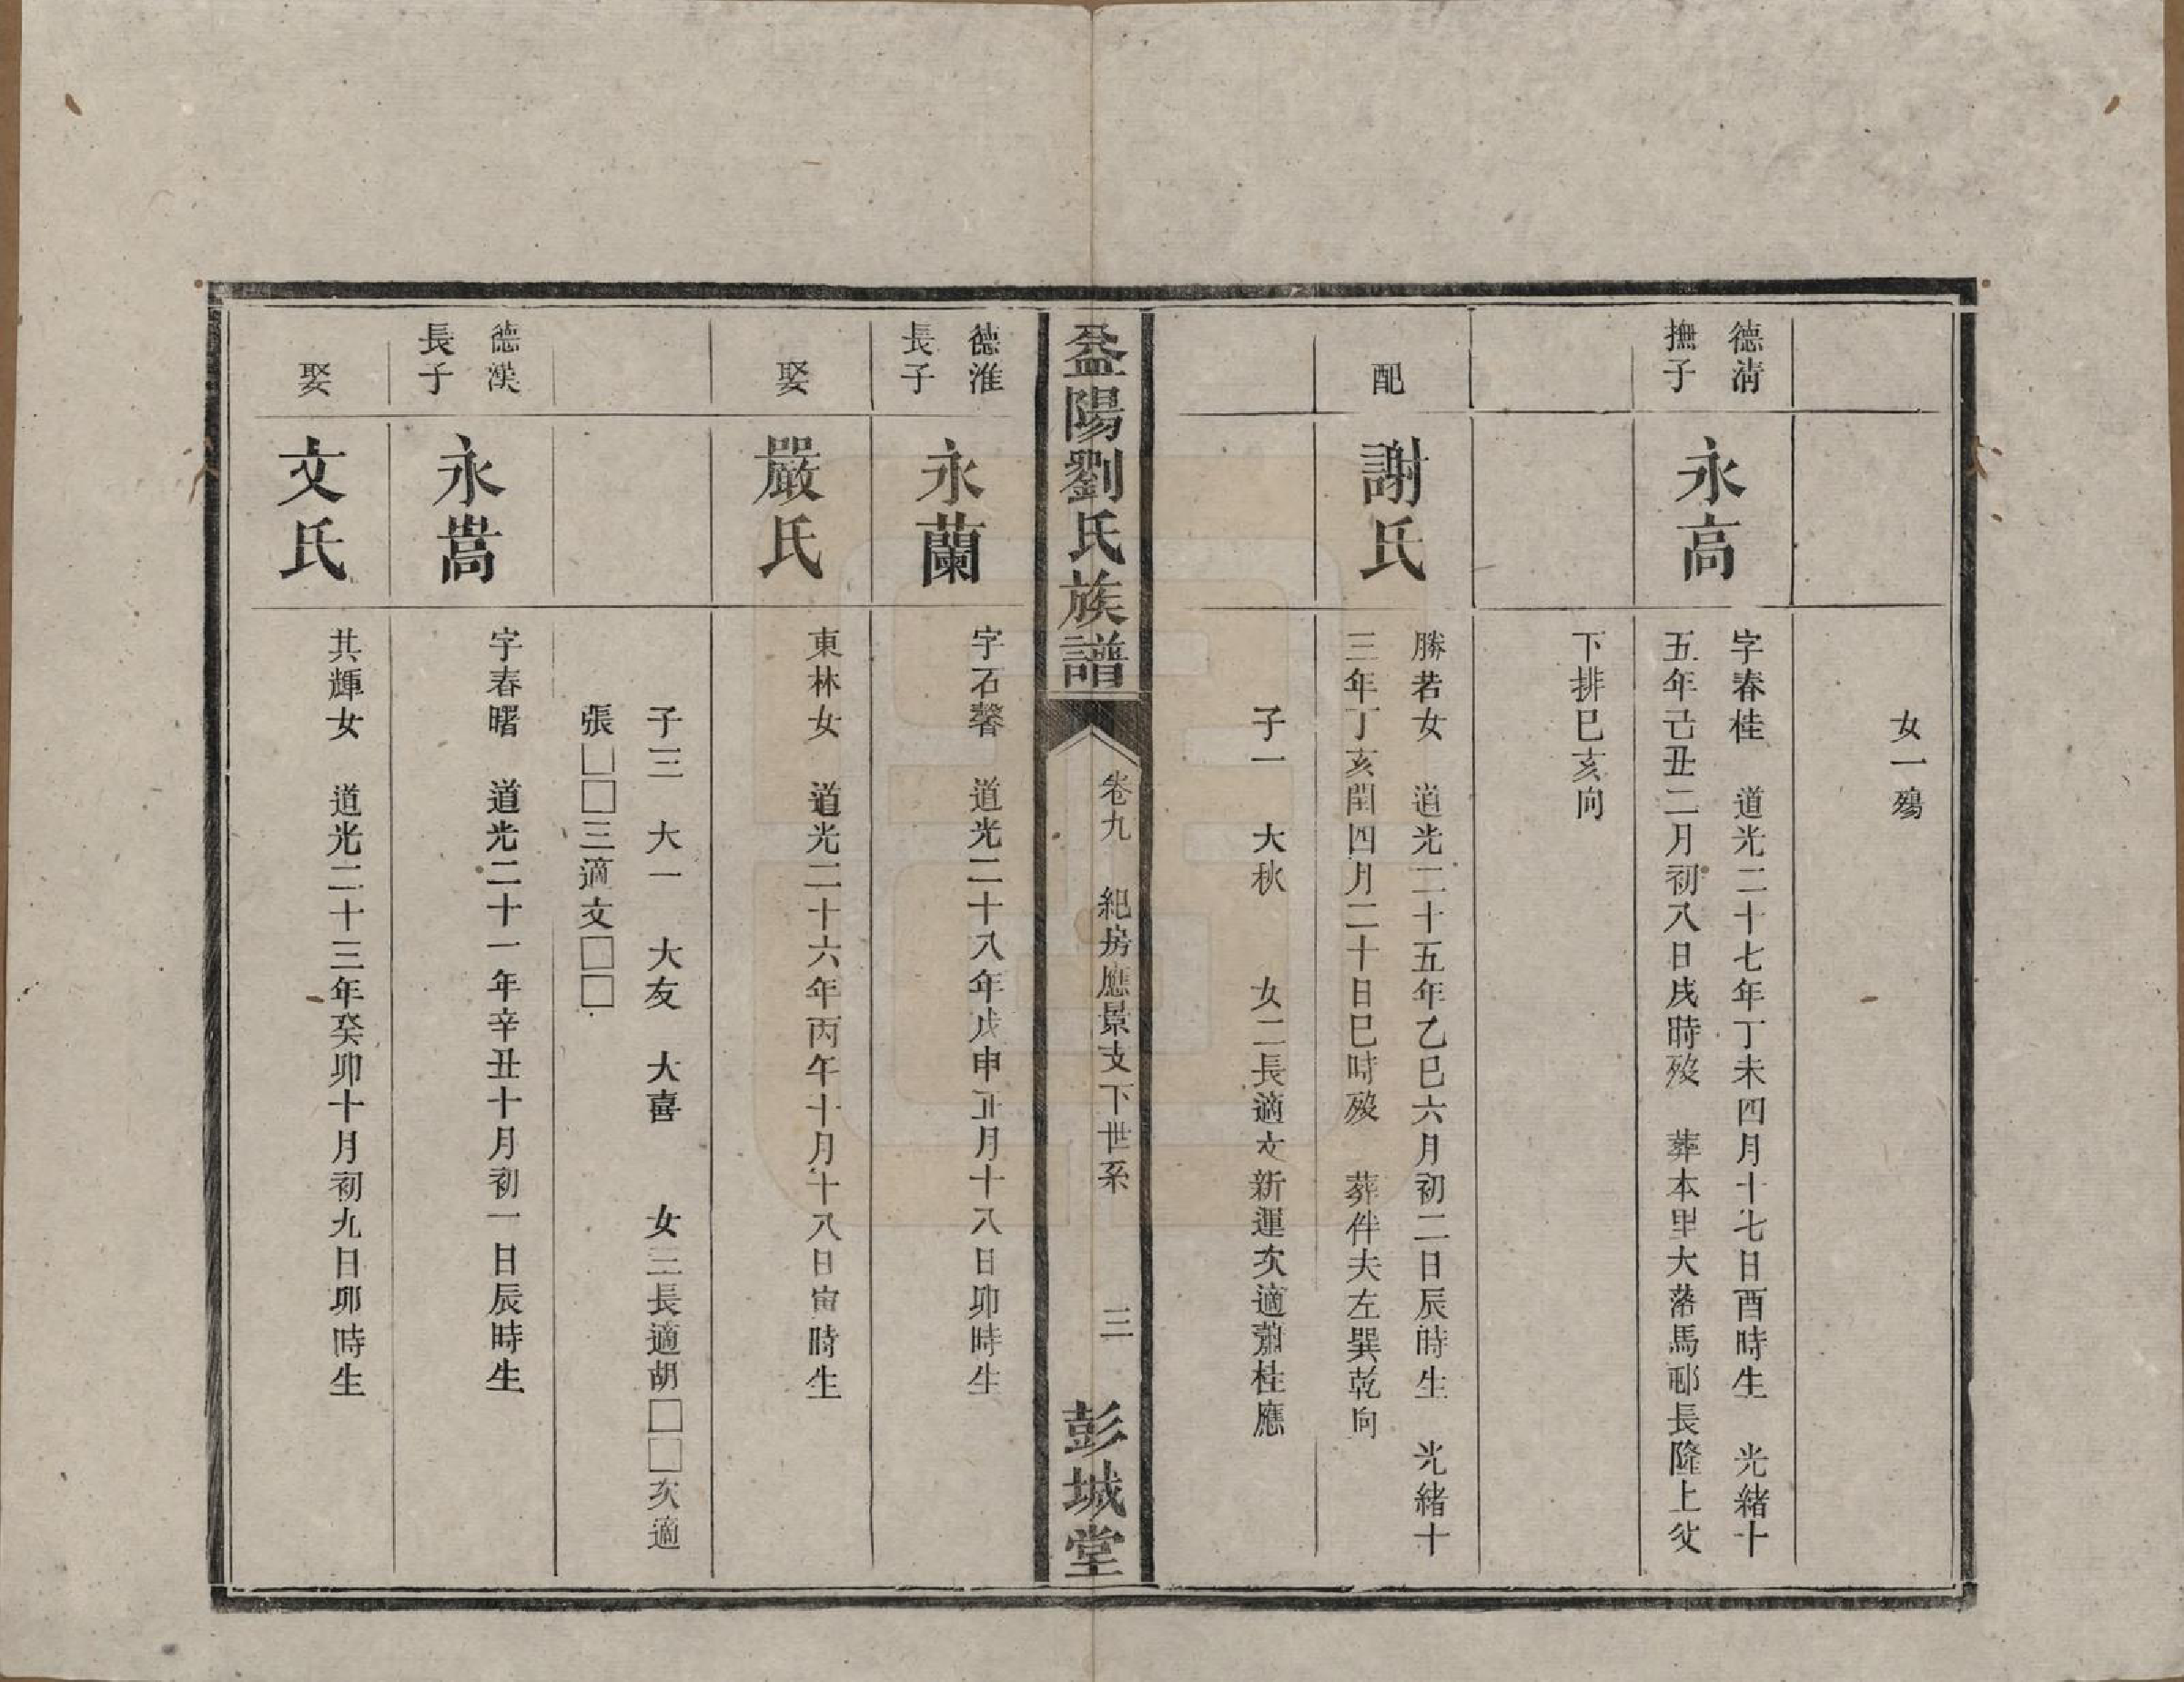 女一殤
德清
撫子
永高
字春桂　道光二十七年丁未四月十七日酉時生　光緒十
五年己丑二月初八日戌時歿　葬本里大落馬𨙻長隆上父
下排巳亥向
配
謝氏
勝若女　道光二十五年乙巳六月初二日辰時生　光緒十
三年丁亥閏四月二十日巳時歿　葬伴夫左巽乾向
子一　大秋　　女二長適文新運次適蕭桂應
益陽劉氏族譜
卷九　紀房應景支下世系
三
彭城堂
德淮
長子
永蘭
字石馨　道光二十八年戊申正月十八日卯時生
娶
嚴氏
東林女　道光二十六年丙午十月十八日寅時生
子三　大一　大友　大喜　　女三長適胡□□次適
張□□三適文□□
德漢
長子
永嵩
字春曙　道光二十一年辛丑十月初一日辰時生
娶
文氏
共輝女　道光二十三年癸卯十月初九日卯時生